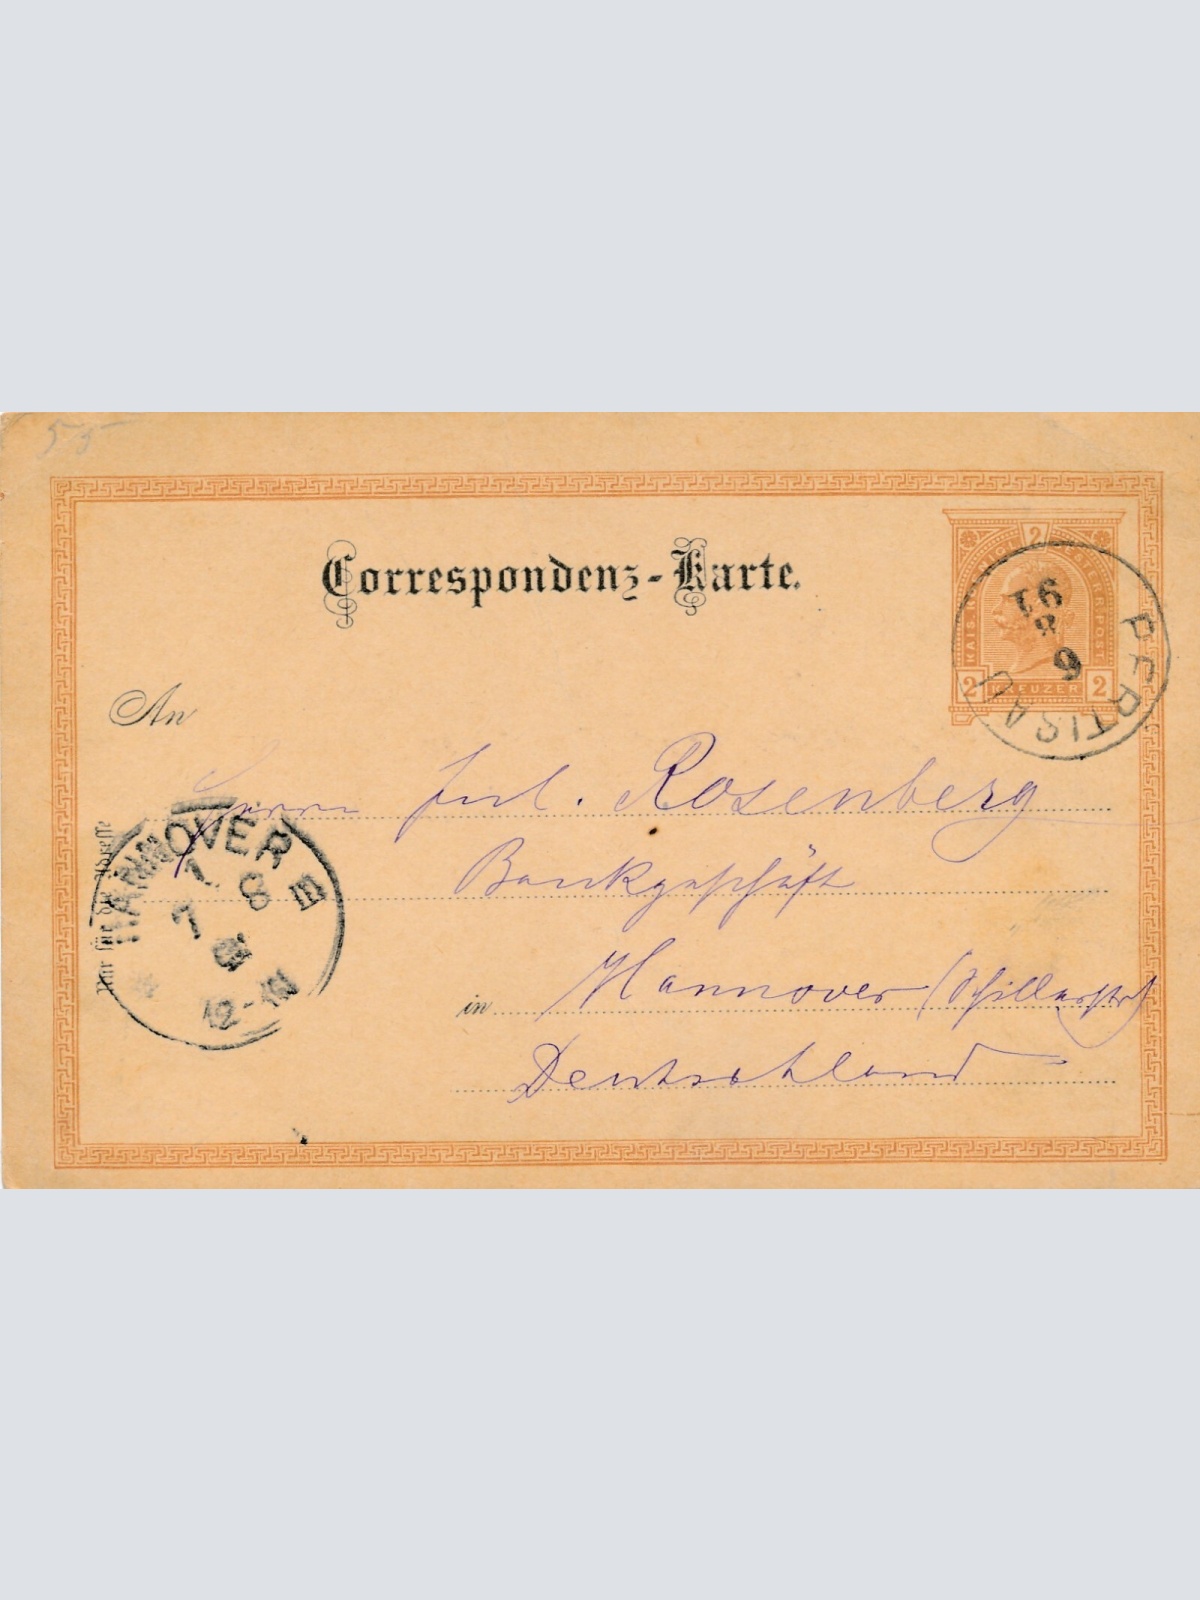 55
Correspondenz-Karte.
2
KREUZER
2
2
PERTISAU
6
8
91
An
Herrn Jul. Rosenberg
Bankgeschäft
in Hannover (Schillerstr)
Deutschland
Nur für die Adresse
HANNOVER
1
7 8
12-1N